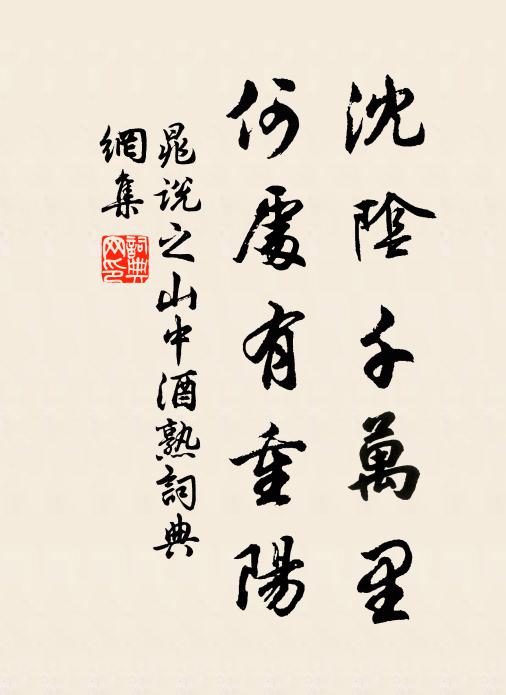 沈陰千萬里
何處有重陽
晁說之山中酒熟詞典
網集
詞典网印